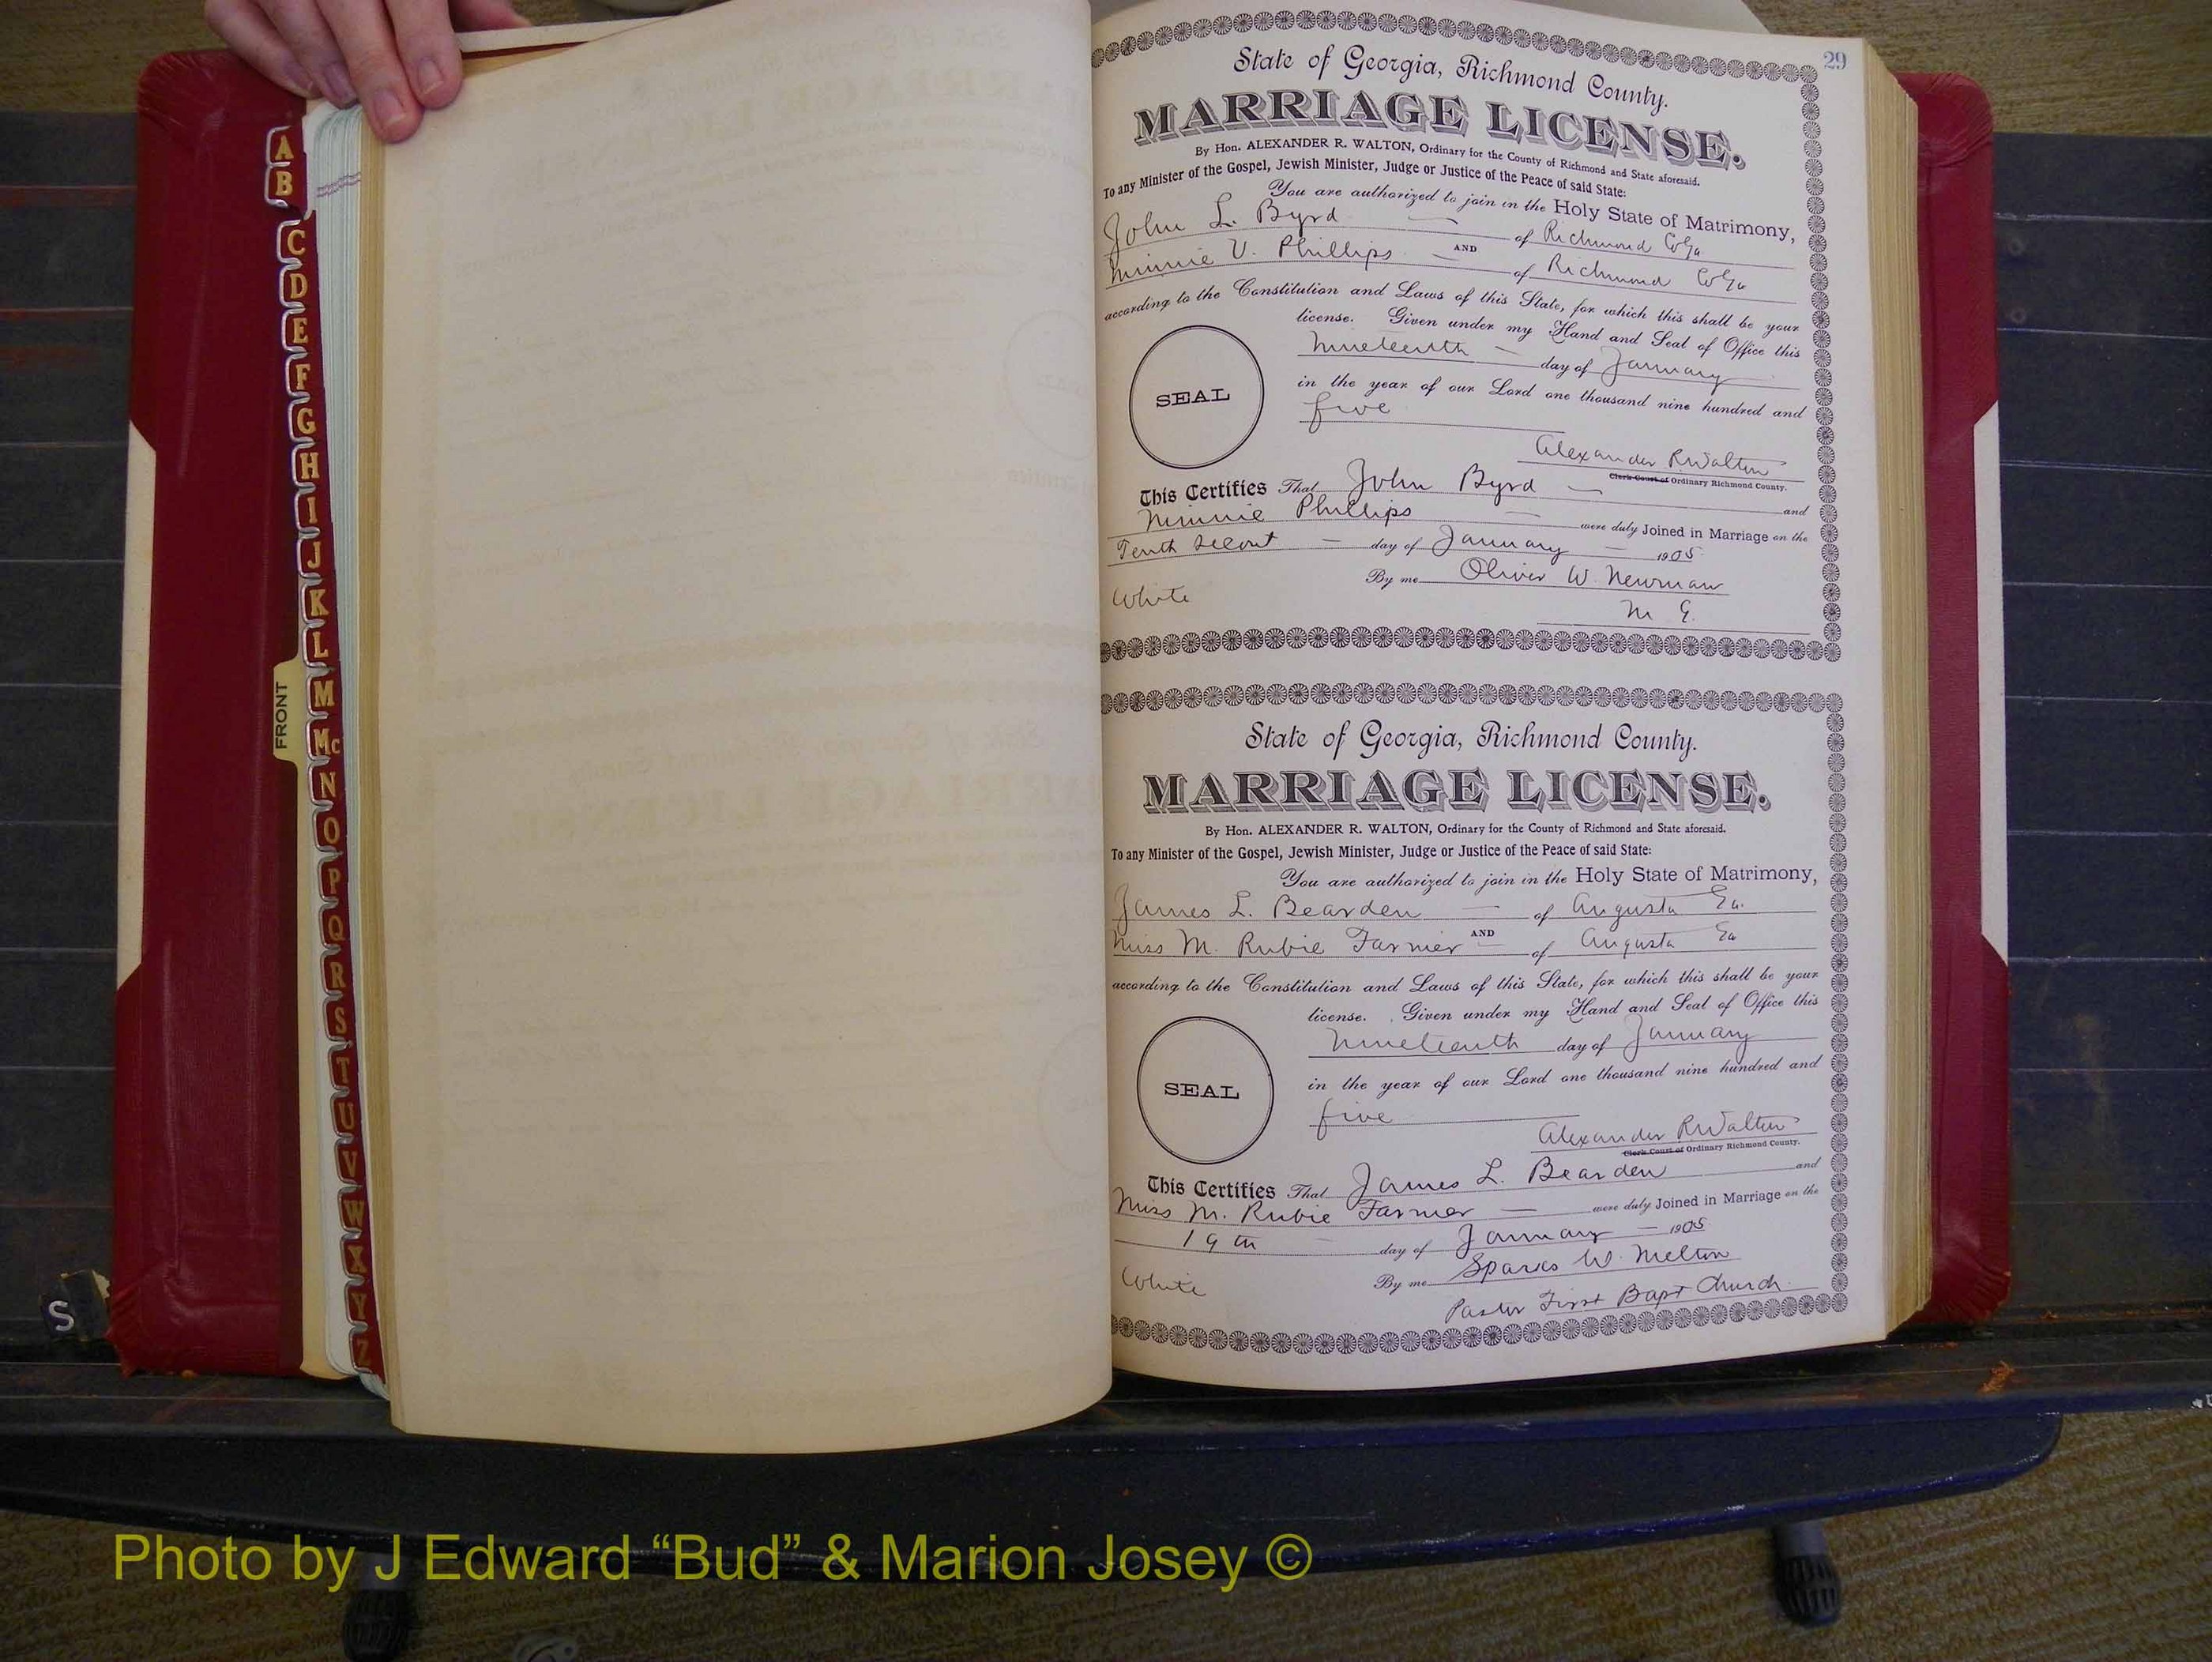 A
B
C
D
E
F
G
H
I
J
K
L
M
Mc
N
O
P
Q
R
S
T
U
V
W
X
Y
Z
FRONT
S
29
State of Georgia, Richmond County.
MARRIAGE LICENSE.
By Hon. ALEXANDER R. WALTON, Ordinary for the County of Richmond and State aforesaid.
To any Minister of the Gospel, Jewish Minister, Judge or Justice of the Peace of said State:
You are authorized to join in the Holy State of Matrimony,
John L. Byrd of Richmond Co Ga
AND
Minnie V. Phillips of Richmond Co Ga
according to the Constitution and Laws of this State, for which this shall be your
license. Given under my Hand and Seal of Office this
Nineteenth day of January
SEAL
in the year of our Lord one thousand nine hundred and
five
Alexander R Walton
Clerk Court of Ordinary Richmond County.
This Certifies That John Byrd and
Minnie Phillips were duly Joined in Marriage on the
Tenth day of January 1905
By me Oliver W. Newman
White
State of Georgia, Richmond County.
MARRIAGE LICENSE.
By Hon. ALEXANDER R. WALTON, Ordinary for the County of Richmond and State aforesaid.
To any Minister of the Gospel, Jewish Minister, Judge or Justice of the Peace of said State:
You are authorized to join in the Holy State of Matrimony,
James L. Bearden of Augusta Ga.
AND
Miss M. Rubie Farmer of Augusta Ga
according to the Constitution and Laws of this State, for which this shall be your
license. Given under my Hand and Seal of Office this
Nineteenth day of January
SEAL
in the year of our Lord one thousand nine hundred and
five
Alexander R Walton
Clerk Court of Ordinary Richmond County.
This Certifies That James L. Bearden and
Miss M. Rubie Farmer were duly Joined in Marriage on the
19th day of January 1905
By me Sparks W. Melton
White
Pastor First Bapt Church.
Photo by J Edward “Bud” & Marion Josey ©